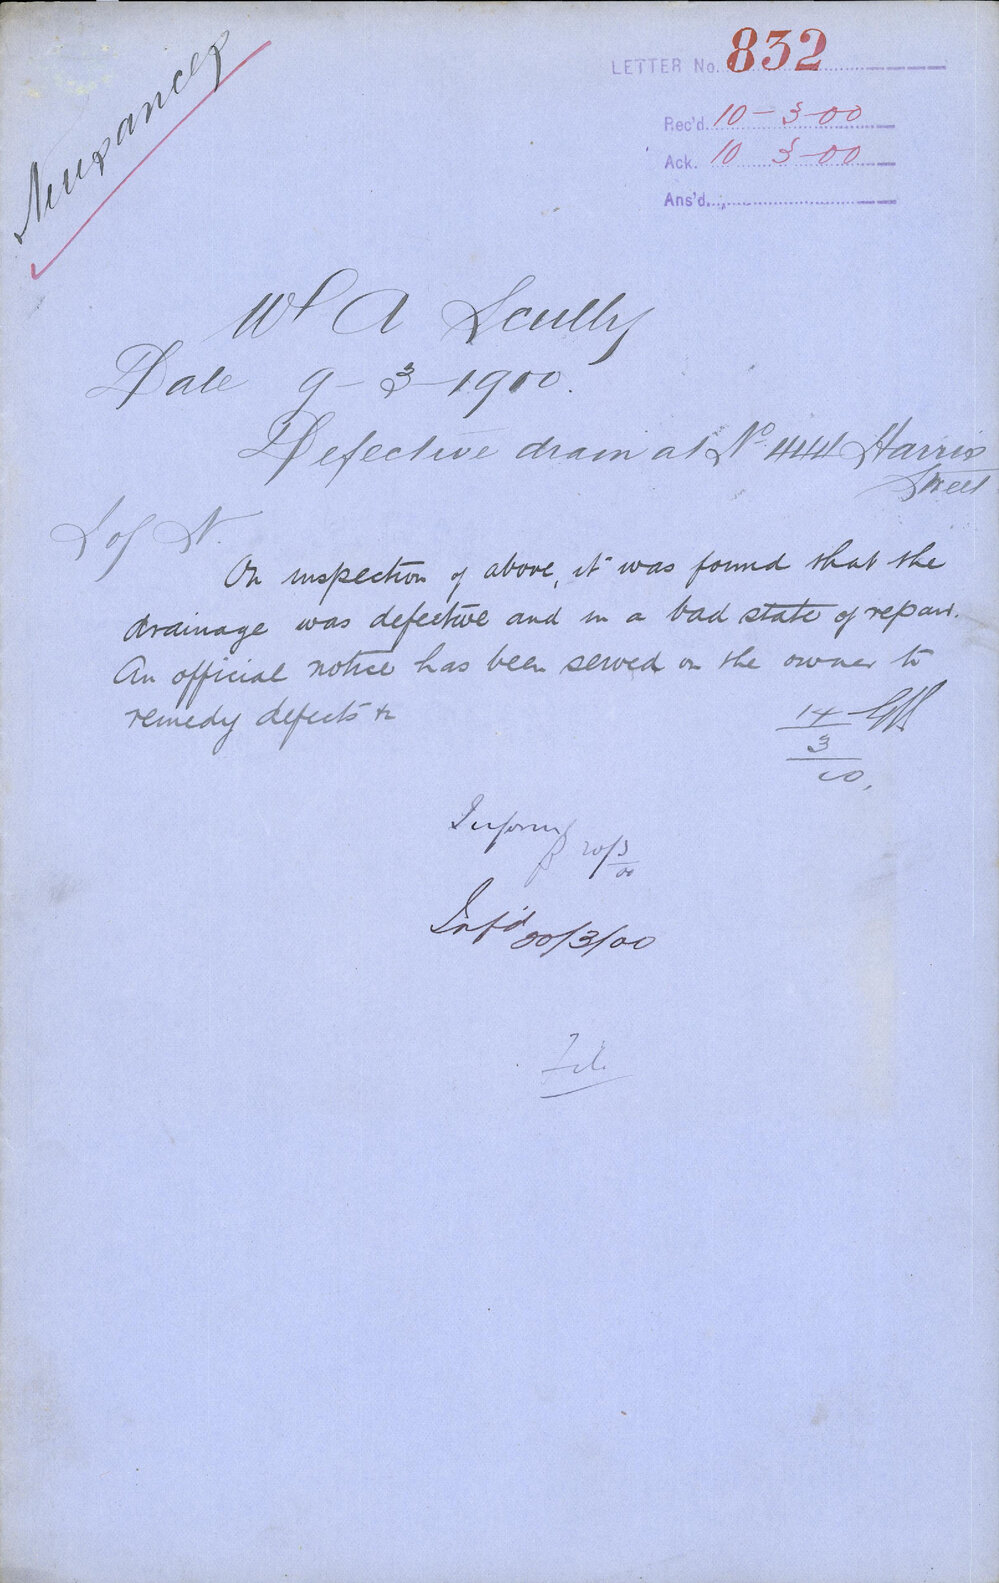 Nuisances
LETTER No. 832
Rec'd. 10-3-00
Ack. 10 3-00
Ans'd.
W A Scully
Date 9-3-1900.
Defective drain at No. 444 Harris
Street
I of N.
On inspection of above, it was found that the
drainage was defective and in a bad state of repair.
An official notice has been served on the owner to
remedy defects &c
14
3
00.
Inform
20/3
00
Inf'd 20/3/00
File